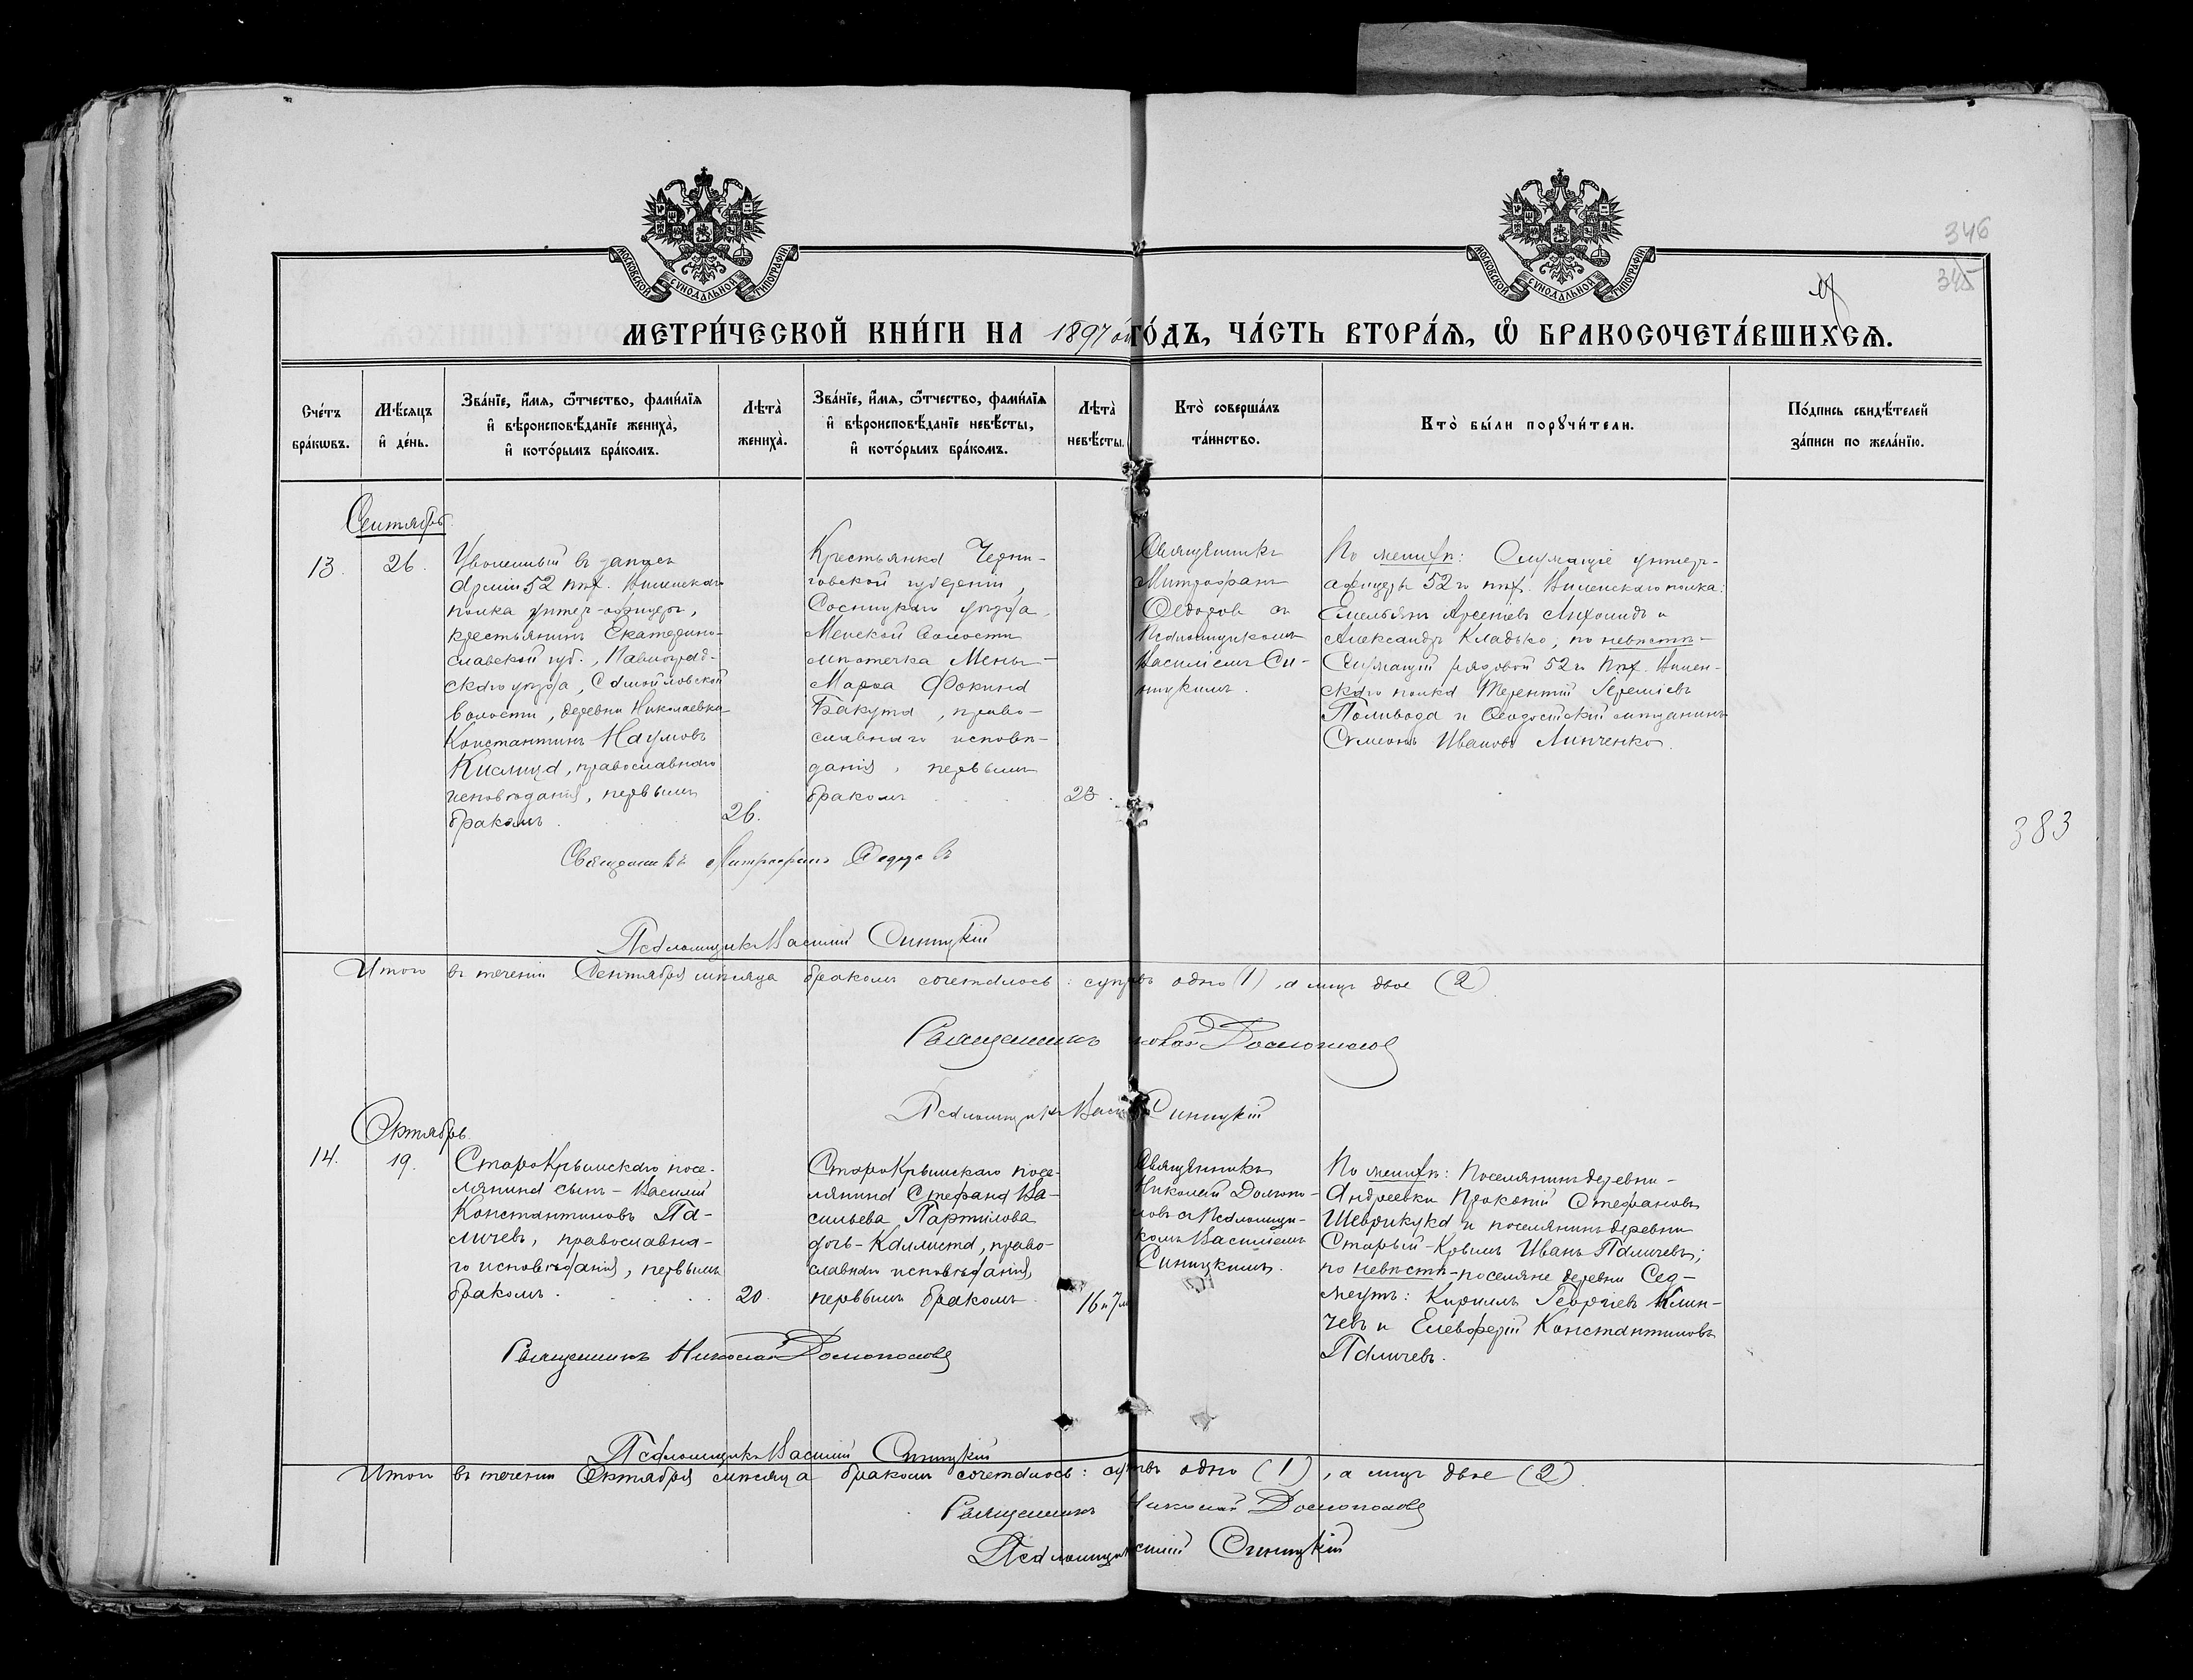 МОСКОВСКОЙ СѴНОДАЛЬНОЙ ТИПОГРАФІИ
МОСКОВСКОЙ СѴНОДАЛЬНОЙ ТИПОГРАФІИ
346
345
МЕТРИ́ЧЕСКОЙ КНИ́ГИ НА 1897 ой ГО́ДЪ, ЧА́СТЬ ВТОРА́Ѧ, Ѡ БРАКОСОЧЕТА́ВШИХСѦ.
Сче́тъ
бра́кѡвъ.
Мѣ́сяцъ
и́ де́нь.
Зва́нїе, и́мя, ѻ́тчество, фами́лїя
и́ вѣроисповѣ́данїе жениха̀,
и́ кото́рымъ бра́комъ.
Лѣта̀
жениха̀.
Зва́нїе, и́мя, ѻ́тчество, фами́лїя
и́ вѣроисповѣ́данїе невѣ́сты,
и́ кото́рымъ бра́комъ.
Лѣта̀
невѣ́сты.
Кто̀ соверша́лъ
та́инство.
Кто̀ бы́ли порꙋчи́тели.
По́дпись свидѣ́телей
за́писи по жела́нїю.
Сентябрь.
13.
26.
Уволенный въ запасъ
Арміи 52 пѣх. Виленскаго
полка унтеръ-офицеръ,
крестьянинъ Екатерино-
славской губ., Павлоград-
скаго уѣзда, Самойловской
волости, деревни Николаевка-
Константинъ Наумовъ
Кислица, православнаго
исповѣданія, первымъ
бракомъ
26.
Крестьянка Черни-
говской губерніи,
Сосницкаго уѣзда,
Менской волости
мѣстечка Мены-
Марѳа Фокина
Бакута, право-
славнаго исповѣ-
данія, первымъ
бракомъ
23.
Священникъ
Митрофанъ
Ѳедоровъ съ
Псаломщикомъ
Василіемъ Си-
ницкимъ.
По женихѣ: Служащіе унтеръ-
офицеры 52го пѣх. Виленскаго полка:
Емельянъ Арсеніевъ и
Александръ Кладько; по невѣстѣ-
Служащій рядовой 52го пѣх. Вилен-
скаго полка Терентій Іереміевъ
Поливода и Ѳеодосійскій мѣщанинъ
Симеонъ Ивановъ Линченко.
383
Священникъ Митрофанъ Ѳедоровъ
Псаломщикъ Василій Синицкій
Итого въ теченіи Сентября мѣсяца бракомъ сочеталось: супр въ одно (1), а лицъ двое (2)
Священникъ Долгополовъ
Псаломщикъ Васи Синицкій
Октябрь.
14.
19.
СтароКрымскаго посе-
лянина сынъ - Василій
Константиновъ Па-
личевъ, православна-
го исповѣданія, первымъ
бракомъ.
20.
СтароКрымскаго посе-
лянина Стефана Ва-
сильева Партилова
дочь - Каллиста, право-
славнаго исповѣданія,
первымъ бракомъ
16 и 7 м
Священникъ
Николай Долгопо-
ловъ съ Псаломщи-
комъ Василіемъ
Синицкимъ.
По женихѣ: Поселянинъ деревни-
Андреевки Прокопій Стефановъ
и поселянинъ деревни
Старый-Крымъ Иванъ Паличевъ;
по невѣстѣ - поселяне деревни Сед-
жеутъ: Кириллъ Георгіевъ Клин-
чевъ и Елевферій Константиновъ
Паличевъ.
Священникъ Николай Долгополовъ
Псаломщикъ Василій Синицкій
Итого въ теченіи Октября мѣсяца бракомъ сочеталось: су въ одно (1), а лицъ двое (2)
Священникъ Николай Долгополовъ
Псаломщикъ силій Синицкій